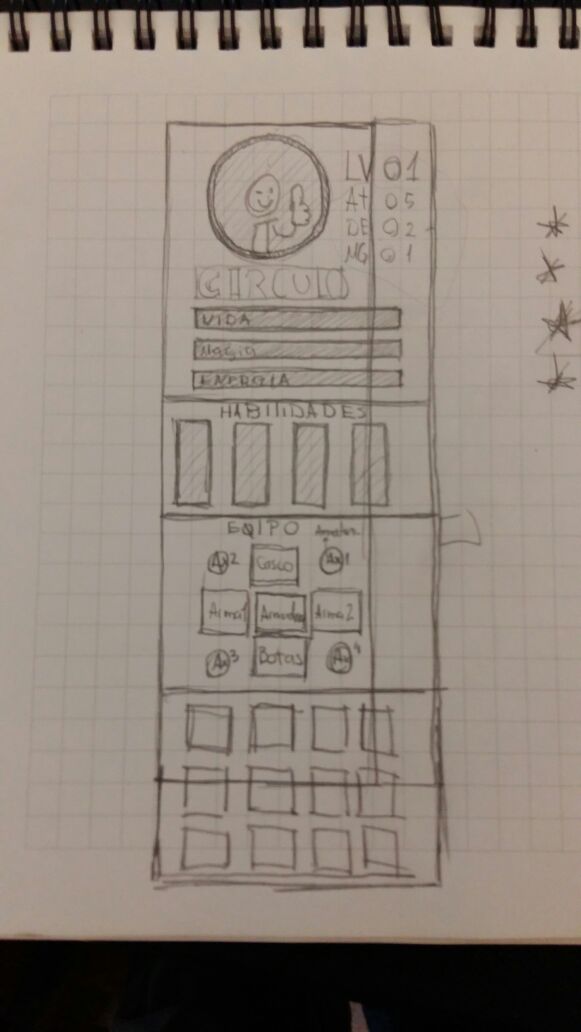 LV 01
At 05
DE 02
MG 01
CIRCULO
VIDA
Magia
ENERGIA
HABILIDADES
EQIPO
Amuleto
Au 2
Casco
Au 1
Arma 1
Armadura
Arma 2
Au 3
Botas
Au 4